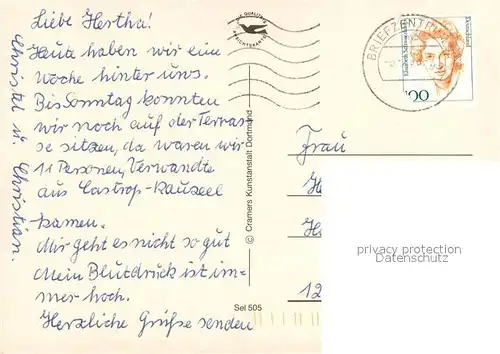 Liebe Hertha!
Heute haben wir eine
Woche hinter uns.
Bis Sonntag konnten
wir noch auf der Terras-
se sitzen, da waren wir
11 Personen, Verwandte
aus Castrop-Rauxel
kamen.
Mir geht es nicht so gut
Mein Blutdruck ist im-
mer hoch.
Herzliche Grüße senden
Christel u. Christian.
© Cramers Kunstanstalt Dortmund
Sel 505
BRIEFZENTRUM
Deutschland
100
Frau
H
H
12
privacy protection
Datenschutz